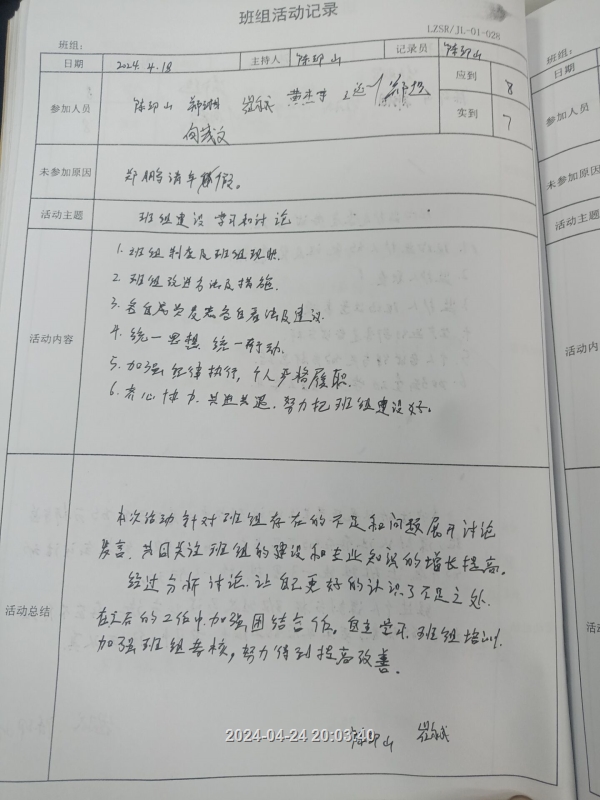 班组活动记录
LZSR/JL-01-028
班组:
日期 2024.4.18 主持人 陈印山 记录员 陈印山
参加人员 陈印山 郑湘 黄杰
应到 8
实到 7
未参加原因 郑鹏请年休假。
活动主题 班组建设 学习和讨论
活动内容
1. 班组制度及班组现状.
2. 班组改进办法及措施.
3. 各组员发表各自看法及建议.
4. 统一思想 统一行动.
5. 加强纪律执行, 个人严格履职.
6. 齐心协力 共进共退. 努力把班组建设好。
活动总结
本次活动针对班组存在的不足和问题展开讨论
发言. 共同关注班组的建设和专业知识的增长提高.
经过分析讨论. 让自己更好的认识了不足之处.
在工后的工作中. 加强团结合作, 自主学习. 班组培训.
加强班组考核, 努力得到提高改善.
陈印山
2024-04-24 20:03:40
班组:
日期
参加人员
未参加原因
活动主题
活动内
活动总